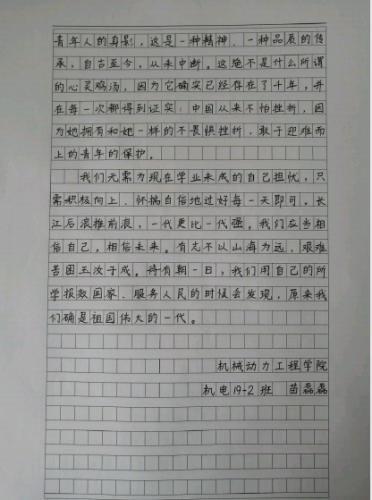 青年人的身影，这是一种精神、一种品质的传
承，自古至今，从来中断。这绝不是什么所谓
的心灵鸡汤，因为它确实已经存在了千年，并
在每一次都得到证实：中国从来不怕挫折，因
为她拥有和她一样的不畏惧挫折、敢于迎难而
上的青年的保护。
我们无需为现在学业未成的自己担忧，只
需积极向上、怀揣自信地过好每一天即可，长
江后浪推前浪，一代更比一代强。我们应当相
信自己，相信未来。有志不以山海为远，艰难
苦困玉汝于成。将有朝一日，我们用自己的所
学报效国家、服务人民的时候会发现，原来我
们确是祖国伟大的一代。
机械动力工程学院
机电19-2班 苗磊磊